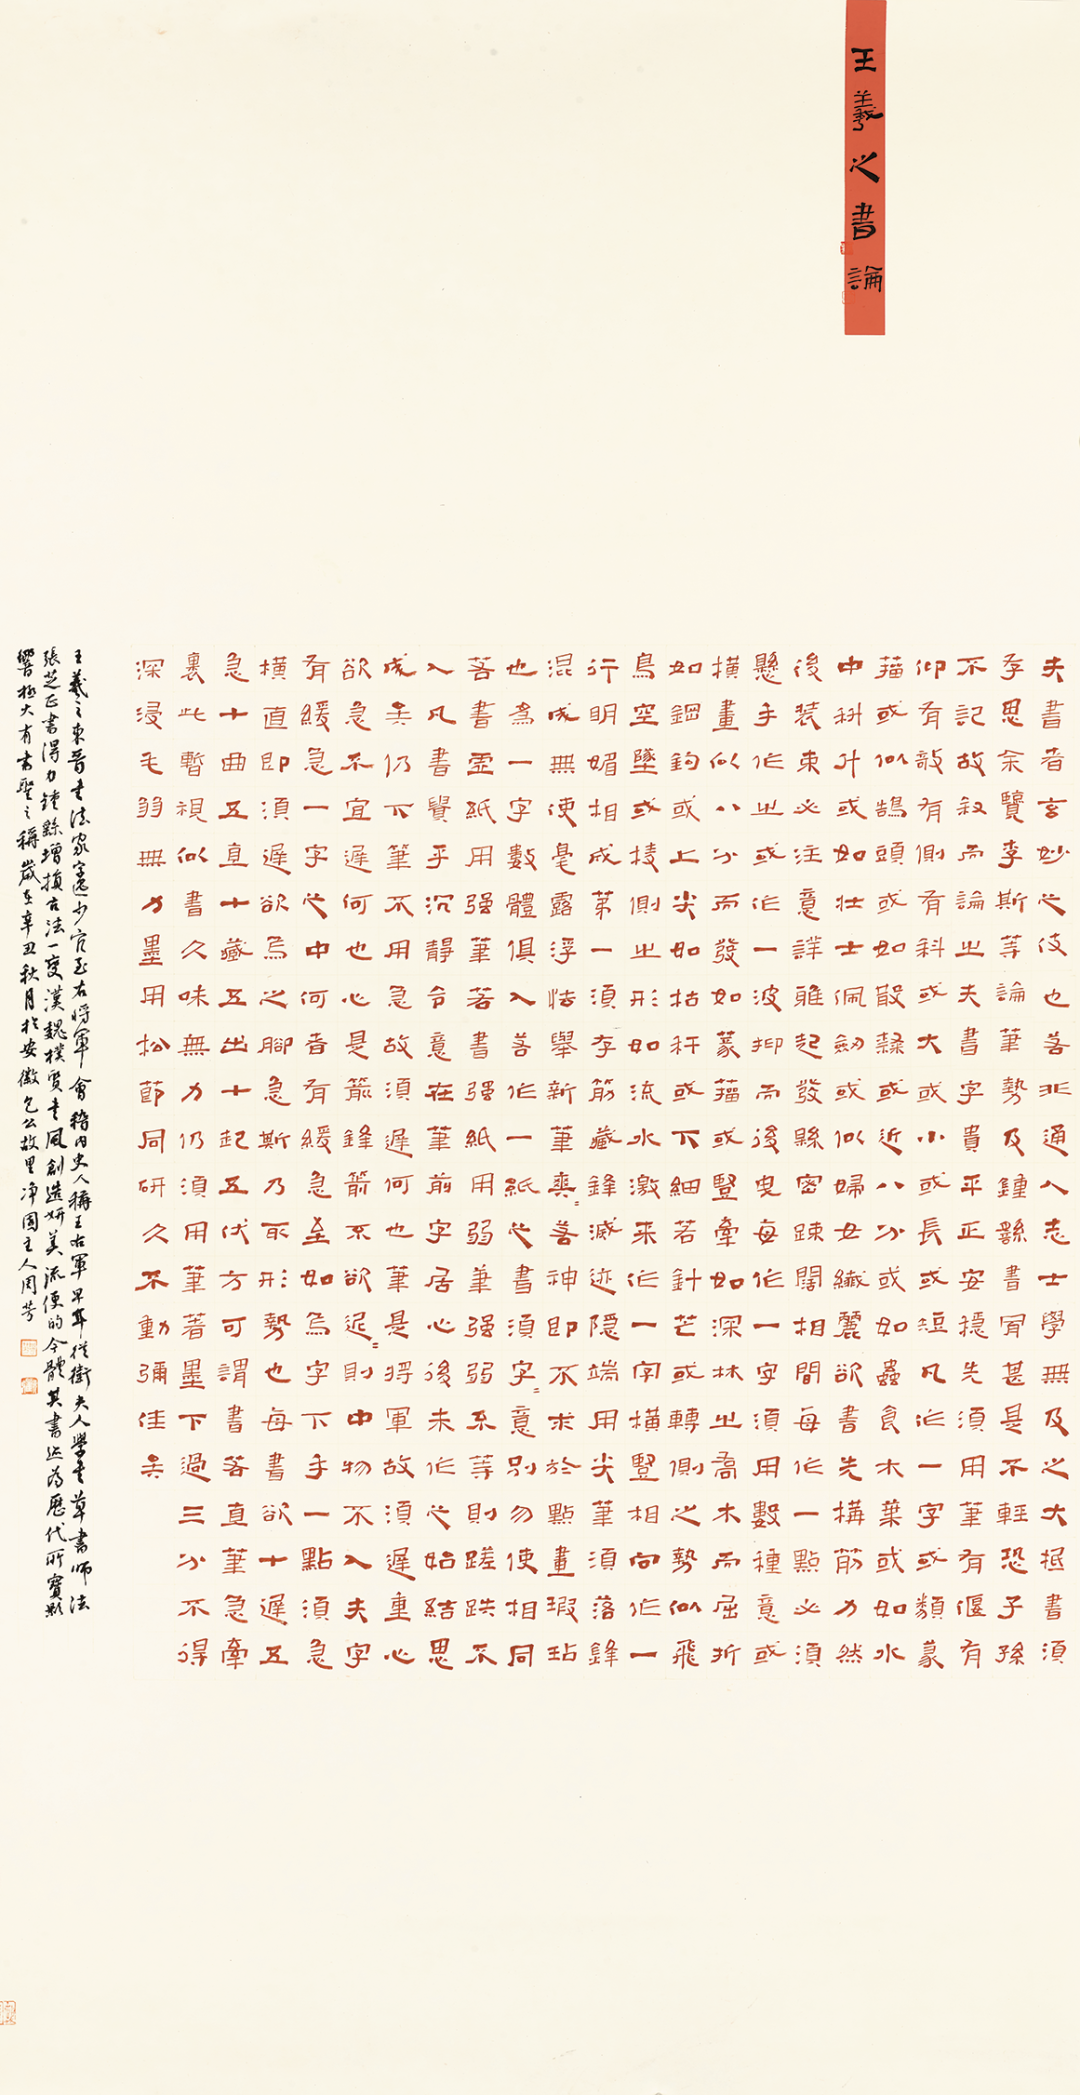 王羲之書論
夫書者玄妙之伎也若非通人志士學無及之大抵書須
存思余覽李斯等論筆勢及鍾繇書骨甚是不輕恐子孫
不記故叙而論之夫書字貴平正安穩先須用筆有偃有
仰有敧有側有科或大或小或長或短凡作一字或類篆
籀或似鵠頭或如散隸或近八分或如蟲食木葉或如水
中科斗或如壯士佩劍或似婦女纖麗欲書先構筋力然
後裝束必注意詳雅起發緜密踈闊相間每作一點必須
懸手作之或作一波抑而後曳每作一字須用數種意或
橫畫似八分而發如篆籀或豎牽如深林之喬木而屈折
如鋼鉤或上尖如枯稈或下細若針芒或轉側之勢似飛
鳥空墜或棱側之形如流水激來作一字橫豎相向作一
行明媚相成第一須存筋藏鋒滅迹隱端用尖筆須落鋒
混成無使毫露浮怯舉新筆爽〻若神即不求於點畫瑕玷
也為一字數體俱入若作一紙之書須字〻意別勿使相同
若書虛紙用强筆若書强紙用弱筆强弱不等則蹉跌不
入凡書貴乎沉靜令意在筆前字居心後未作之始結思
成矣仍下筆不用急故須遲何也筆是將軍故須遲重心
欲急不宜遲何也心是箭鋒箭不欲遲〻則中物不入夫字
有緩急一字之中何者有緩急至如烏字下手一點須急
橫直即須遲欲烏之腳急斯乃取形勢也每書欲十遲五
急十曲五直十藏五出十起五伏方可謂書若直筆急牽
裏此暫視似書久味無力仍須用筆著墨下過三分不得
深浸毛弱無力墨用松節同研久不動彌佳矣
王羲之東晉書法家字逸少官至右將軍會稽內史人稱王右軍早年從衛夫人學書草書師法
張芝正書得力鍾繇增損古法一變漢魏樸質書風創造妍美流便的今體其書迹為歷代所寶影
響極大有書聖之稱歲在辛丑秋月於安徽包公故里淨園主人周芳